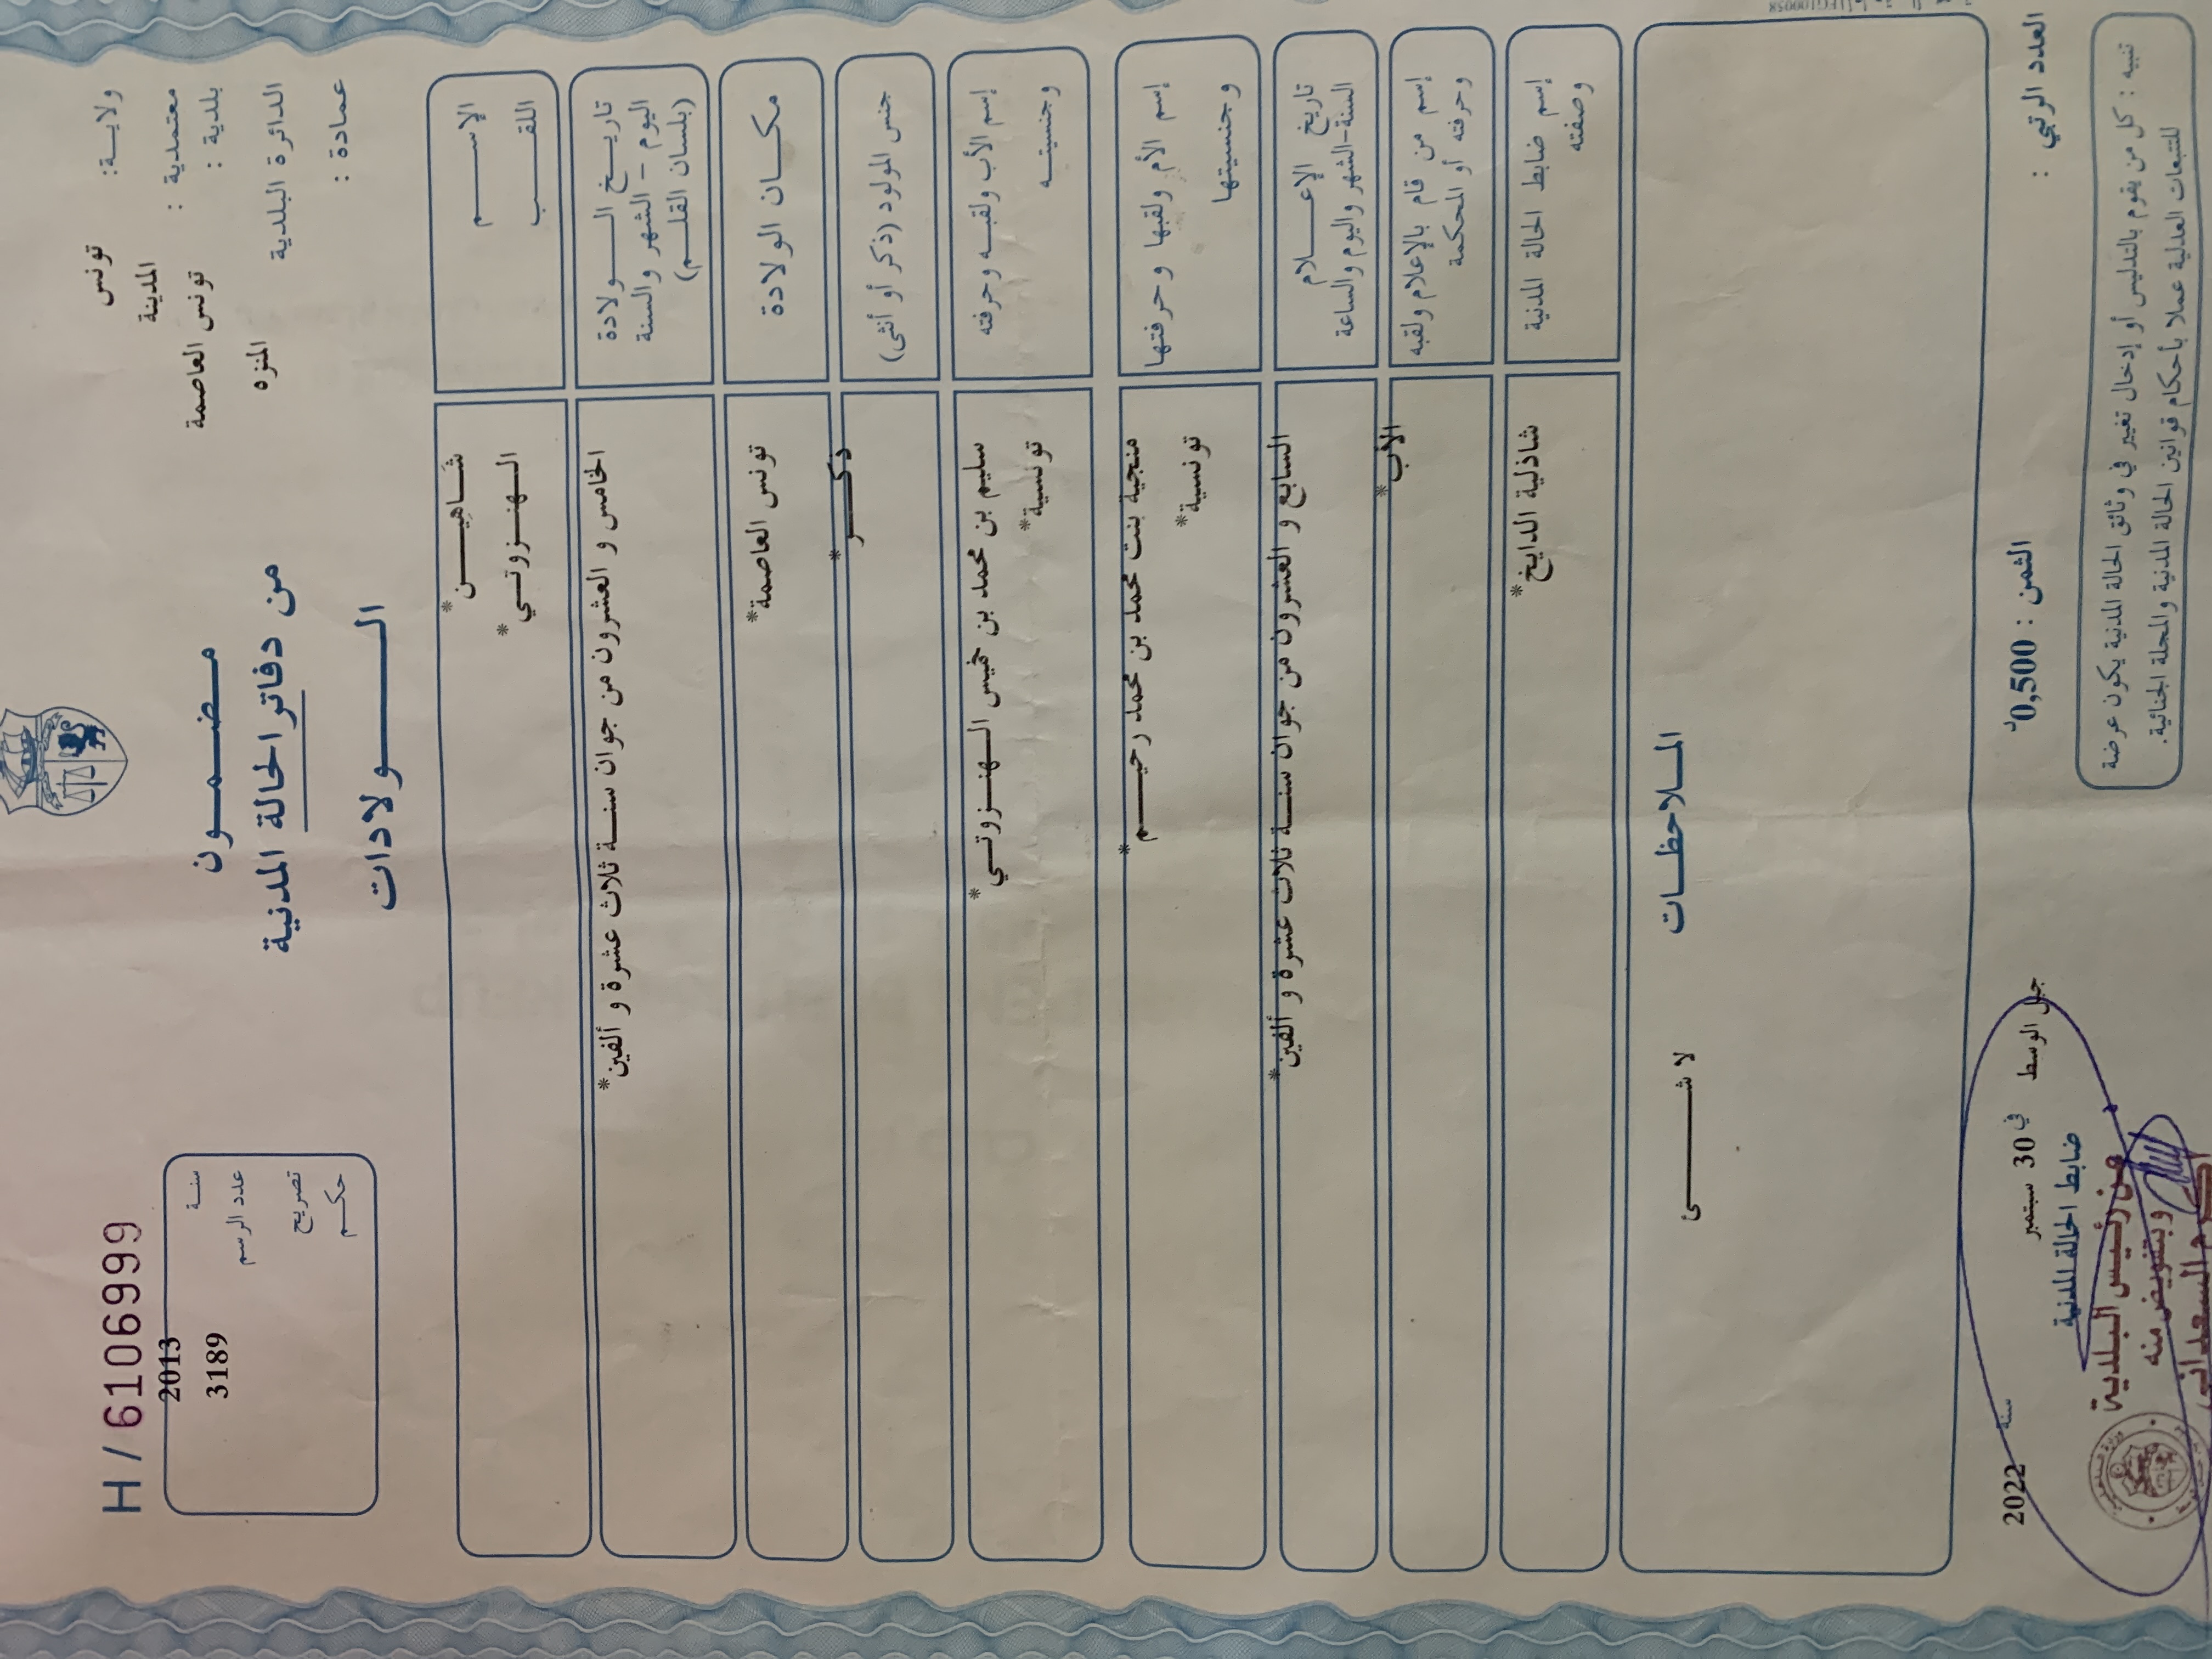 H / 6106999
ولايـــة: تونس
معتمدية : المدينة
بلدية : تونس العاصمة
الدائرة البلدية المنزه
عمادة :
مـضـمـــون
من دفاتر الحالة المدنية
الـــــولادات
سنـة 2013
عدد الرسم 3189
تصريح
حكـم
الإســـــم شـــاهيـــن*
اللقــــب الـهنـزوتـي*
تاريــخ الـــولادة
اليوم - الشهر والسنة
(بلسان القلـــم)
الخامس و العشرون من جوان سنـــة ثلاث عشرة و ألفين*
مكــان الولادة تونس العاصمة*
جنس المولود (ذكر أو أنثى) ذكـــر*
إسم الأب ولقبــه وحرفته سليم بن محمد بن خميس الـهنـزوتـي*
وجنسيتــه تونسية*
إسم الأم ولقبها وحرفتها منجية بنت محمد بن محمد رحيـــم*
وجنسيتها تونسية*
تاريخ الإعـــلام
السنة-الشهر واليوم والساعة
السابع و العشرون من جوان سنـــة ثلاث عشرة و ألفين*
إسم من قام بالإعلام ولقبه
وحرفته أو المحكمة
الأب*
إسم ضابط الحالة المدنية
وصفته
شاذلية الدايخ*
المـلاحظـات
لا شـــــئ
العدد الرتبي :
الثمن : 0,500د
جبل الوسط في 30 سبتمبر سنة 2022
ضابط الحالة المدنية
عن رئيس البلدية
وبتفويض منه
أكرم السعداني
تنبيه : كل من يقوم بالتدليس أو إدخال تغيير في وثائق الحالة المدنية يكون عرضة
للتتبعات العدلية عملا بأحكام قوانين الحالة المدنية والمجلة الجنائية.